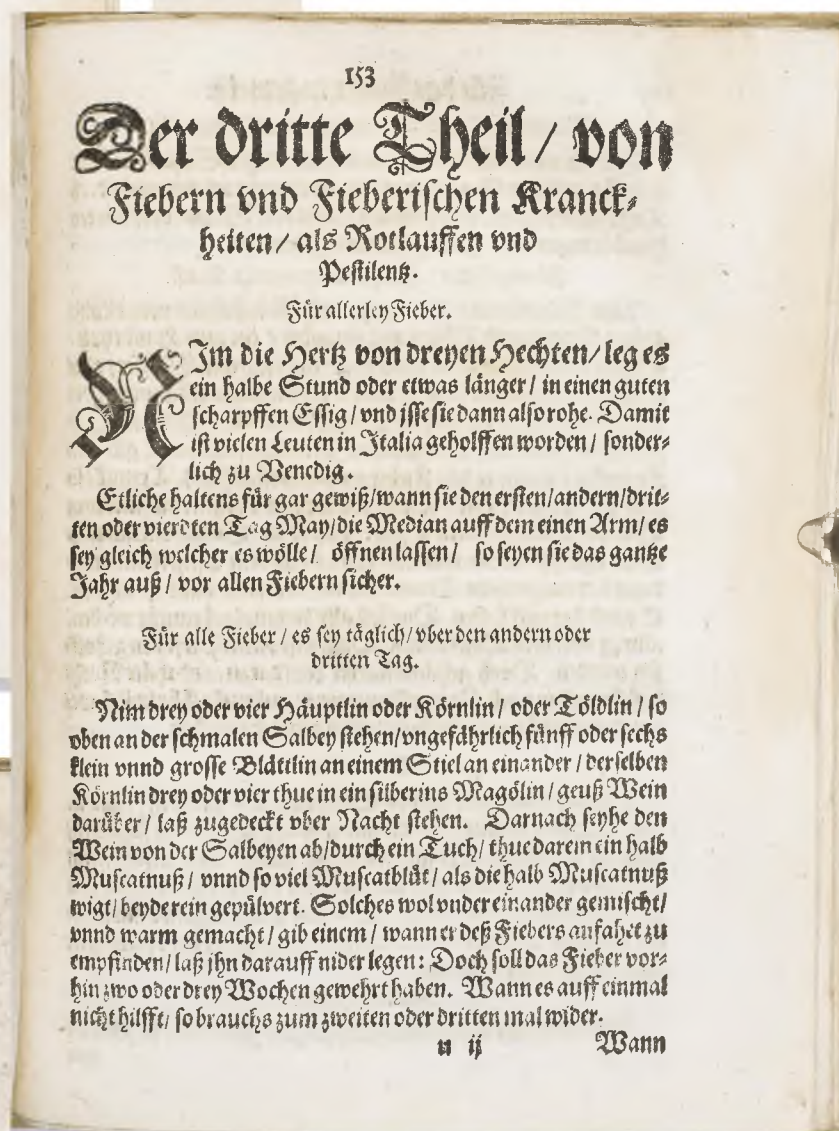 153
Der dritte Theil / von
Fiebern vnd Fieberischen Kranck-
heiten / als Rotlauffen vnd
Pestilentz.
Für allerley Fieber.
NIm die Hertz von dreyen Hechten / leg es
ein halbe Stund oder etwas länger / in einen guten
scharpffen Essig / vnd jsse sie dann also rohe. Damit
ist vielen Leuten in Italia geholffen worden / sonder-
lich zu Venedig.
Etliche haltens für gar gewiß / wann sie den ersten / andern / drit-
ten oder vierdten Tag May / die Median auff dem einen Arm / es
sey gleich welcher es wölle / öffnen lassen / so seyen sie das gantze
Jahr auß / vor allen Fiebern sicher.
Für alle Fieber / es sey täglich / vber den andern oder
dritten Tag.
Nim drey oder vier Häuptlin oder Körnlin / oder Töldlin / so
oben an der schmalen Salbey stehen / vngefährlich fünff oder sechs
klein vnnd grosse Blättlin an einem Stiel an einander / derselben
Körnlin drey oder vier thue in ein silberins Magölin / geuß Wein
darüber / laß zugedeckt vber Nacht stehen. Darnach seyhe den
Wein von der Salbeyen ab / durch ein Tuch / thue darein ein halb
Muscatnuß / vnnd so viel Muscatblüt / als die halb Muscatnuß
wigt / beyde rein gepülvert. Solches wol vnder einander gemischt /
vnnd warm gemacht / gib einem / wann er deß Fiebers anfahet zu
empfinden / laß jhn darauff nider legen : Doch soll das Fieber vor-
hin zwo oder drey Wochen gewehrt haben. Wann es auff einmal
nicht hilfft / so brauchs zum zweiten oder dritten mal wider.
u ij Wann